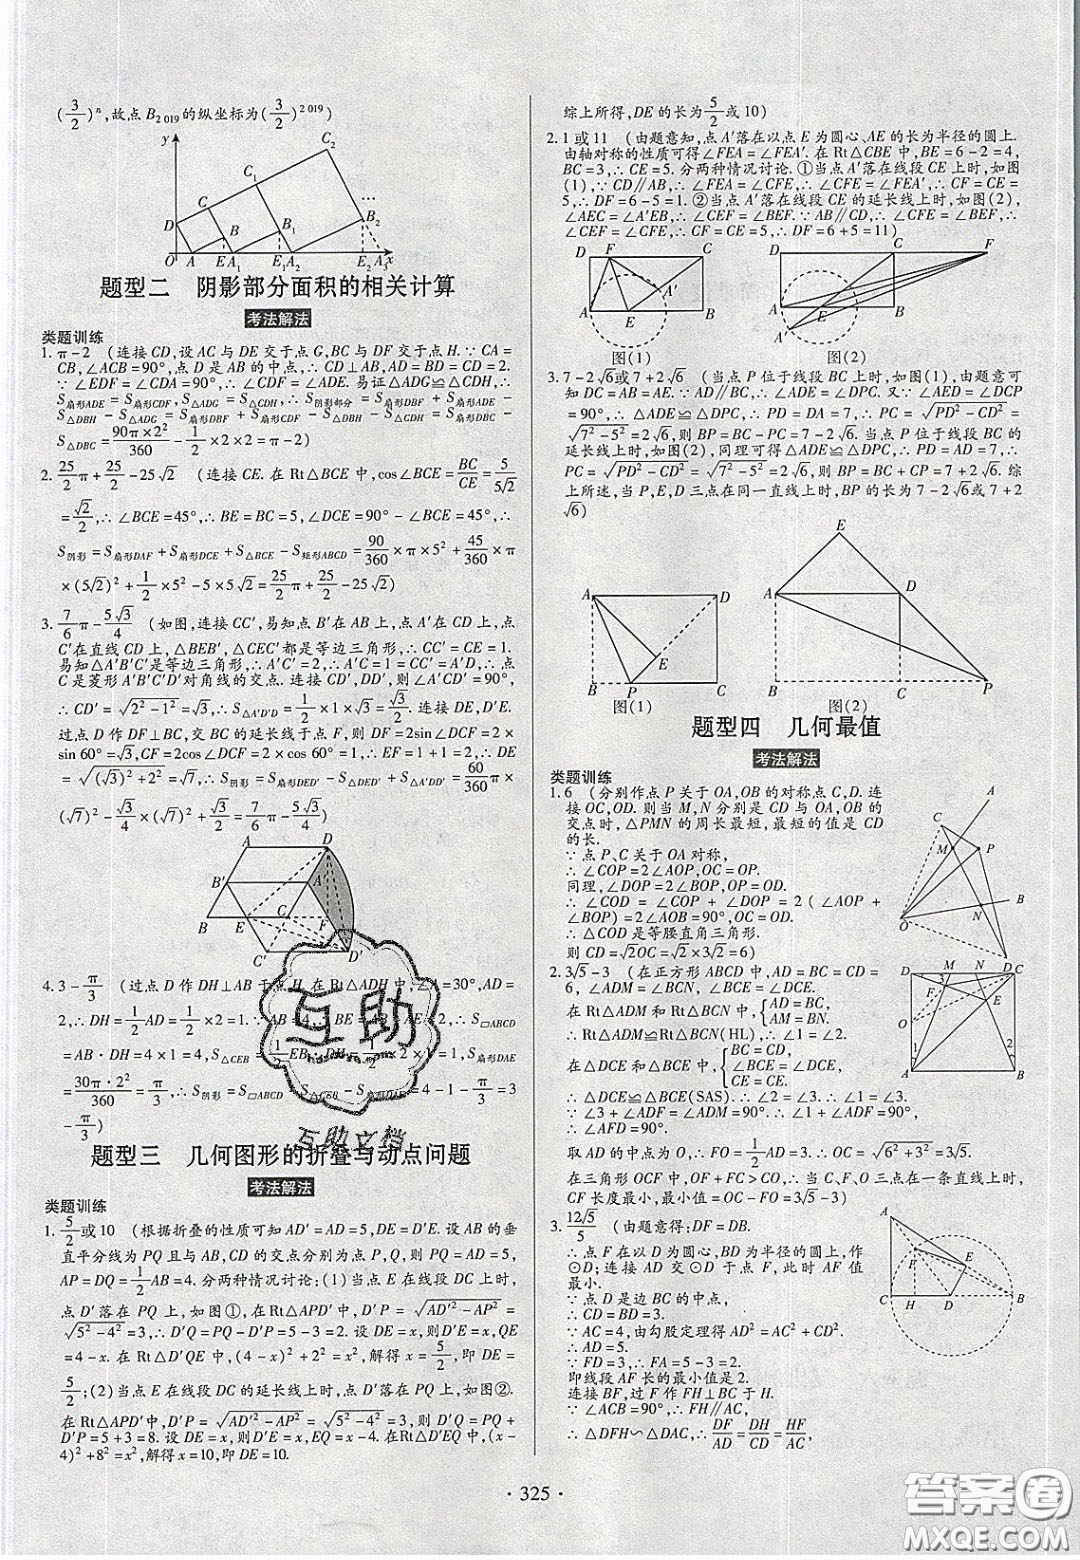 (3/2)ⁿ,故点B₂₀₁₉的纵坐标为(3/2)²⁰¹⁹)
y C₂ C₁ C B₂ D B B₁ O A E A₁ E₁ A₂ E₂ A₃ x
题型二 阴影部分面积的相关计算
考法解法
类题训练
1. π-2 (连接CD,设AC与DE交于点G,BC与DF交于点H.∵CA=
CB,∠ACB=90°,点D是AB的中点,∴CD⊥AB,AD=BD=CD=2.
∵∠EDF=∠CDA=90°,∴∠CDF=∠ADE.易证△ADG≌△CDH,∴
S扇形ADE=S扇形CDF,S△ADG=S△CDH,∴S阴影部分=S扇形BDE+S扇形ADE-
S△DBH-S△ADG=S扇形DBF+S扇形CDF-S△DBH-S△CDH=S扇形DBC-
S△DBC=90π×2²/360-1/2×2×2=π-2)
2. 25/2π+25/2-25√2 (连接CE.在Rt△BCE中,cos∠BCE=BC/CE=5/5√2
=√2/2,∴∠BCE=45°,∴BE=BC=5,∠DCE=90°-∠BCE=45°,∴
S阴影=S扇形DAF+S扇形DCE+S△BCE-S矩形ABCD=90/360×π×5²+45/360×π
×(5√2)²+1/2×5²-5×5√2=25/2π+25/2-25√2)
3. 7/6π-5√3/4 (如图,连接CC′,易知点B′在AB上,点A′在CD上,点
C′在直线CD上,△BEB′,△CEC′都是等边三角形,∴CC′=CE=1.
易知△A′B′C′是等边三角形,∴A′C′=2,∴A′C=CC′=A′D,∴点
C是菱形A′B′C′D′对角线的交点.连接CD′,DD′,则∠A′CD′=90°,
∴CD′=√2²-1²=√3,∴S△A′D′D=1/2×1×√3=√3/2.连接DE,D′E.
过点D作DF⊥BC,交BC的延长线于点F,则DF=2sin∠DCF=2×
sin 60°=√3,CF=2cos∠DCF=2×cos 60°=1,∴EF=1+1=2,∴DE
=√(√3)²+2²=√7,∴S阴影=S扇形DED′-S△DED′-S△A′D′D=60/360×π×
(√7)²-1/2×√7×√7×√3/2+√3/2=7/6π-5√3/4)
D B′ A′ B E C F C′ D′
4. 3-π/3 (过点D作DH⊥AB于点H.在Rt△ADH中,∠A=30°,AD=
2,∴DH=1/2AD=1/2×2=1.∵AB=4,∴BE=AB-AE=2,∴S▱ABCD
=AB·DH=4×1=4,S△CEB=1/2EB·DH=1/2×2×1=1,S扇形DAE
=30π·2²/360=π/3,∴S阴影=S▱ABCD-S△CEB-S扇形DAE=4-1-π/3=3
-π/3)
题型三 几何图形的折叠与动点问题
考法解法
类题训练
1. 5/2或10 (根据折叠的性质可知AD′=AD=5,DE=D′E.设AB的垂
直平分线为PQ且与AB、CD的交点分别为点P、点Q,则AD=PQ=5,
AP=DQ=1/2AB=4.分两种情况讨论:(1)当点E在线段DC上时,
点D′落在PQ上,如图①,在Rt△APD′中,D′P=√AD′²-AP²=
√5²-4²=3,∴D′Q=PQ-D′P=5-3=2.设DE=x,则D′E=x,QE
=4-x.在Rt△D′QE中,(4-x)²+2²=x²,解得x=5/2,即DE=
5/2;(2)当点E在线段DC的延长线上时,点D′落在PQ上,如图②.
在Rt△APD′中,D′P=√AD′²-AP²=√5²-4²=3,则D′Q=PQ+
D′P=5+3=8.设DE=x,则D′E=x,QE=x-4.在Rt△D′EQ中,(x-
4)²+8²=x²,解得x=10,即DE=10.
综上所得,DE的长为5/2或10)
2. 1或11 (由题意知,点A′落在以点E为圆心、AE的长为半径的圆上.
由轴对称的性质可得∠FEA=∠FEA′.在Rt△CBE中,BE=6-2=4,
BC=3,∴CE=5.分两种情况讨论.①当点A′落在线段CE上时,如图
(1),∵CD∥AB,∴∠FEA=∠CFE,∴∠CFE=∠FEA′,∴CF=CE=
5,∴DF=6-5=1.②当点A′落在线段CE的延长线上时,如图(2),
∠AEC=∠A′EB,∴∠CEF=∠BEF.∵AB∥CD,∴∠CFE=∠BEF,∴
∠CFE=∠CEF,∴CF=CE=5,∴DF=6+5=11)
D F C A′ A E B
图(1)
D C F A E B A′
图(2)
3. 7-2√6或7+2√6 (当点P位于线段BC上时,如图(1),由题意可
知DC=AB=AE.∵AD∥BC,∴∠ADE=∠DPC.又∵∠AED=∠DCP
=90°,∴△ADE≌△DPC,∴PD=DA=7,∴PC=√PD²-CD²=
√7²-5²=2√6,则BP=BC-PC=7-2√6.当点P位于线段BC的
延长线上时,如图(2),同理可得△ADE≌△DPC,∴PD=AD=7,∴
PC=√PD²-CD²=√7²-5²=2√6,则BP=BC+CP=7+2√6.综
上所述,当P,E,D三点在同一直线上时,BP的长为7-2√6或7+2
√6)
A D E B P C
图(1)
E A D B C P
图(2)
题型四 几何最值
考法解法
类题训练
1. 6 (分别作点P关于OA,OB的对称点C,D.连
接OC,OD.则当M,N分别是CD与OA,OB的
交点时,△PMN的周长最短,最短的值是CD
的长.
∵点P、C关于OA对称,
∴∠COP=2∠AOP,OC=OP.
同理,∠DOP=2∠BOP,OP=OD.
∴∠COD=∠COP+∠DOP=2(∠AOP+
∠BOP)=2∠AOB=90°,OC=OD.
∴△COD是等腰直角三角形.
则CD=√2OC=√2×3√2=6)
A C M P B N O D
2. 3√5-3 (在正方形ABCD中,AD=BC=CD,
∠ADC=∠BCD,∠DCE=∠BCE.
在Rt△ADM和Rt△BCN中,{AD=BC, AM=BN.
∴Rt△ADM≌Rt△BCN(HL),∴∠1=∠2.
在△DCE和△BCE中,{BC=CD, ∠BCE=∠DCE, CE=CE.
∴△DCE≌△BCE(SAS).∴∠2=∠3.∴∠1=∠3.
∵∠3+∠ADF=∠ADC=90°,∴∠1+∠ADF=90°,
∴∠AFD=90°.
取AD的中点为O,∴FO=1/2AD=3.∴CO=√6²+3²=3√5.
在三角形OFC中,OF+CF>CO,∴当C、F、O三点在一条直线上时,
CF长度最小,最小值=CO-FO=3√5-3)
D M N C 3 F E O 1 2 A B
3. 12√5/5 (由题意得:DF=DB.
∴点F在以D为圆心,BD为半径的圆上,作
⊙D;连接AD交⊙D于点F,此时AF值
最小.
∵点D是边BC的中点,
∴CD=BD=3.
∵AC=4,由勾股定理得AD²=AC²+CD².
∴AD=5.
∵FD=3,∴AF=5-3=2.
连接BF,过F作FH⊥BC于H.
∵∠ACB=90°,∴FH∥AC,
∴△DFH∽△DAC,∴DF/AD=DH/CD=HF/AC,
A F E C H D B
· 325 ·
互助
互助文档
答案圈
MXQE.COM